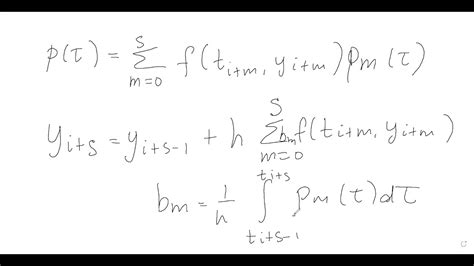 p(τ) = \sum_{m=0}^{s} f(t_{i+m}, y_{i+m}) p_m(τ)
y_{i+s} = y_{i+s-1} + h \sum_{m=0}^{s} b_m f(t_{i+m}, y_{i+m})
b_m = \frac{1}{h} \int_{t_{i+s-1}}^{t_{i+s}} p_m(τ) dτ